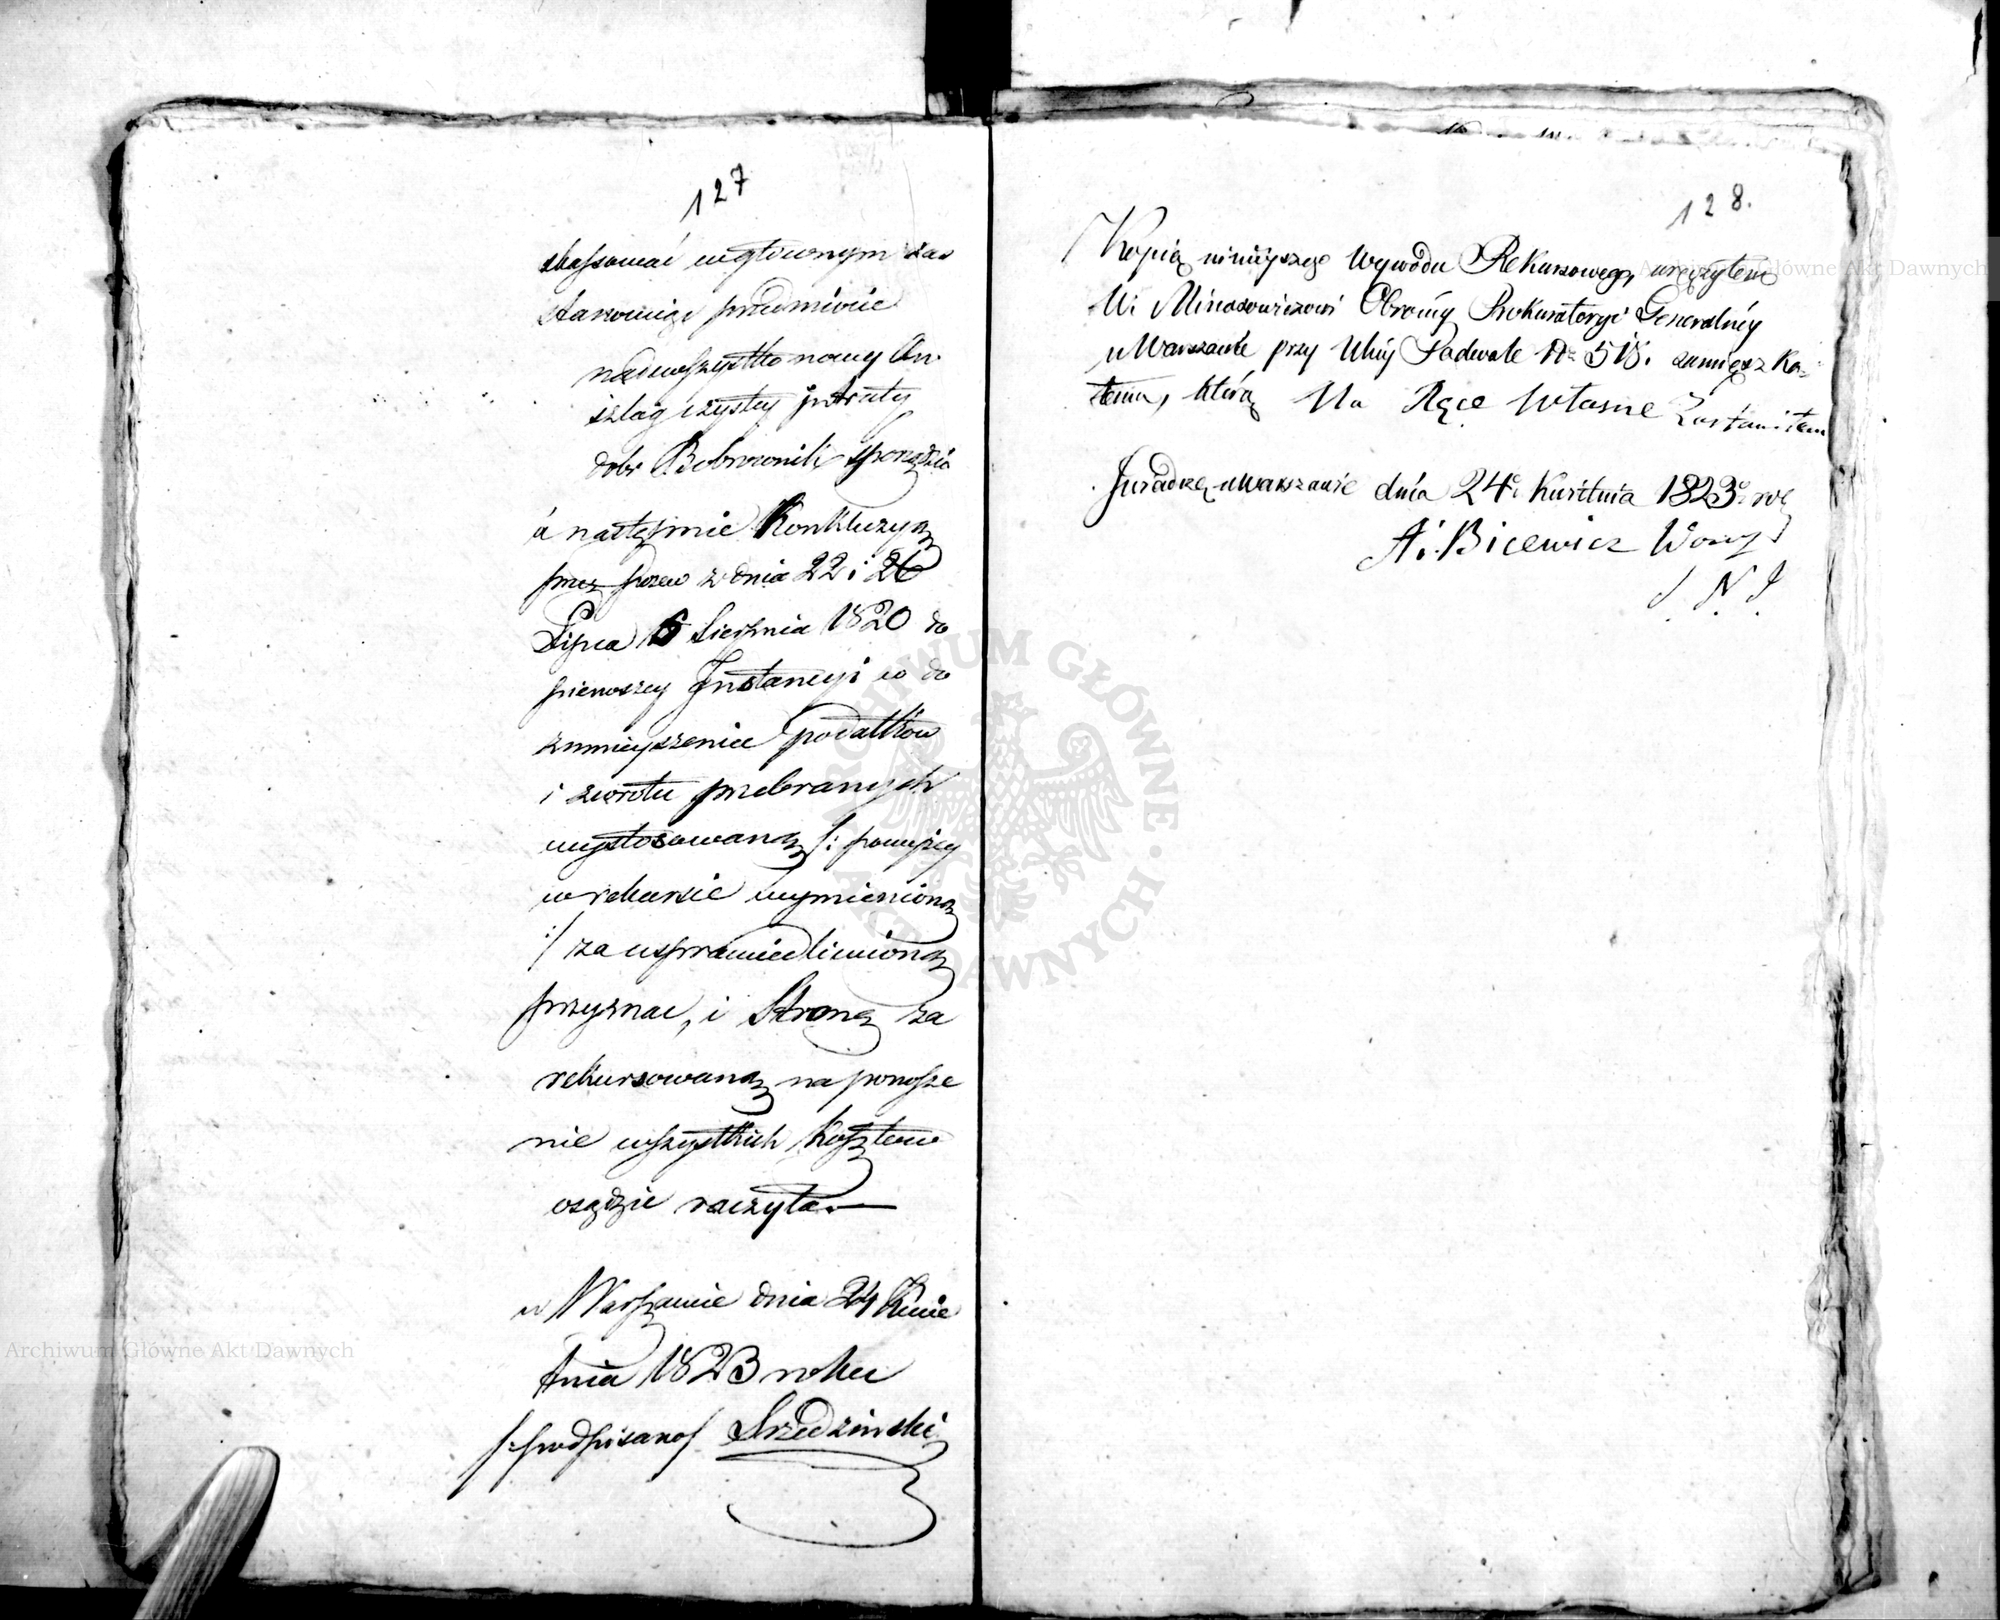 127
skassować w głównym zas
stanowiąc przedmiocie
nadewszystko nowy An
szlag czystey intraty
dobr Bobrownik sporządzić
á następnie Konkluzyą
przez pozew z dnia 22 i 26
Lipca 6 Sierpnia 1820 do
pierwszey Instancyi co do
zmnieyszenia podatków
i zwrotu przebranych
wystosowaną /: powyżey
w rekursie wymienioną
:/ za usprawiedliwioną
przyznac, i Stronę za
rekursowaną na ponosze
nie wszystkich Kosztow
osądzić raczyła.—
w Warszawie dnia 24 Kwie
tnia 1823 roku
/:podpisano/ Srzedzinski
128.
Kopią ninieyszego Wywodu Rekursowego, wręczyłem
W. Minasowiczowi Obrońcy Prokuratoryi Generalnéy
w Warszawie przy Ulicy Podwale Nr 518. zamieszka-
łemu, którą Na Ręce Własne Zostawiłem
w Warszawie dnia 24o Kwietnia 1823o rok
A. Bicewicz Wozny
S. N. I.
Archiwum Główne Akt Dawnych
Archiwum Główne Akt Dawnych
ARCHIWUM GŁÓWNE AKT DAWNYCH